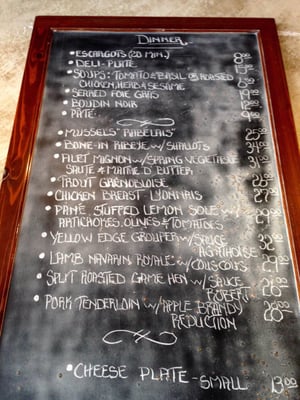 DINNER
• ESCARGOTS (20 MIN.)
• DELI-PLATE
• SOUPS: TOMATO & BASIL OR ROASTED
CHICKEN, HERB & SESAME
• SEARED FOIE GRAS
• BOUDIN NOIR
• PATÉ
• MUSSELS "RABELAIS" 25.00
• BONE-IN RIBEYE W/ SHALLOTS 34.00
• FILET MIGNON W/SPRING VEGETABLE 31.00
SAUTÉ & MAITRE D' BUTTER
• TROUT GRENOBLOISE
• CHICKEN BREAST LYONNAIS 27.00
• PANÉ STUFFED LEMON SOLE W/
ARTICHOKES, OLIVES & TOMATOES
• YELLOW EDGE GROUPER W/SAUCE
AGATHOISE
• LAMB NAVARIN ROYALE W/COUSCOUS 29.00
• SPLIT ROASTED GAME HEN W/SAUCE 26.00
ROBERT
• PORK TENDERLOIN W/APPLE BRANDY 26.00
REDUCTION
• CHEESE PLATE - SMALL 13.00